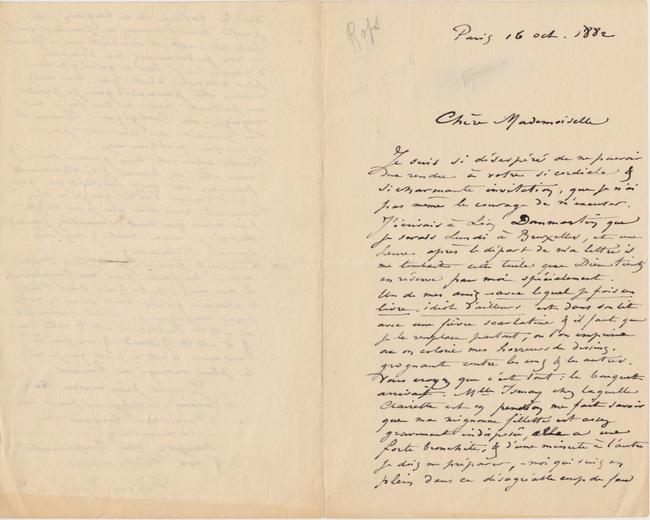 Rops
Paris 16 oct. 1882
Chère Mademoiselle
Je suis si désespéré de ne pouvoir
me rendre à votre si cordiale &
si charmante invitation, que je n'ai
pas même le courage de m'excuser.
J'écrivais à Léon Dommartin que
je serais Lundi à Bruxelles, et une
heure après le départ de ma lettre il
me tombait cette tuile que Dieu tient
en réserve pour moi spécialement.
Un de mes amis avec lequel je fais un
livre, idiot d'ailleurs est dans son lit
avec une fièvre scarlatine & il faut que
je le remplace partout, où l'on imprime
ou on colorie mes horreurs de dessins,
grognant contre les uns & les autres.
Vous croyez que c'est tout: le bouquet
arrivait. Mlle chez laquelle
Clairette est en pension me fait savoir
que ma mignonne fillette est assez
gravement indisposée, elle a une
forte bronchite, & d'une minute à l'autre
je dois me préparer, – moi qui suis en
plein dans ce désagréable coup de feu